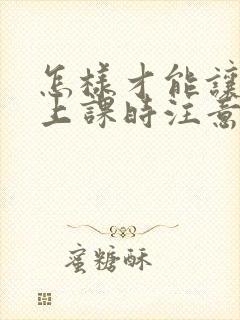 怎樣才能讓
上課時注意
蜜糖酥